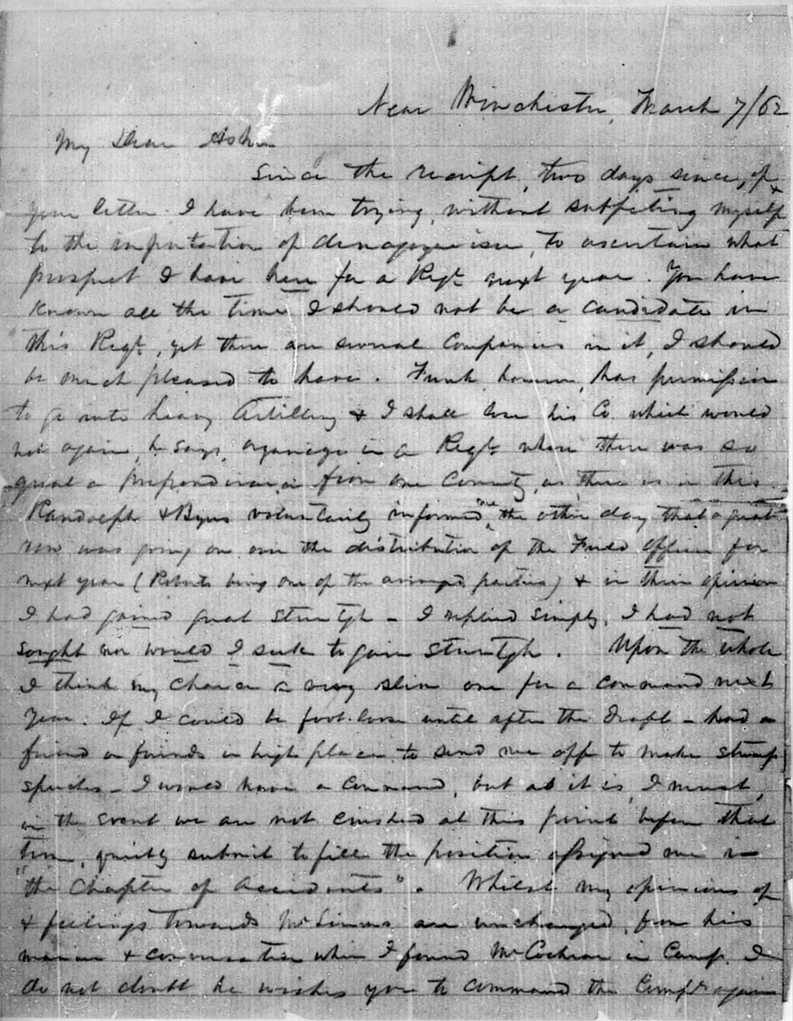 Near Winchester, March 7/62
My Dear Asher
Since the receipt, two days since, of
your letter I have been trying, without subjecting myself
to the imputation of demagogueism, to ascertain what
prospect I have here for a Regt. next year. You have
known all the time I should not be a candidate in
this Regt, yet there are several Companies in it, I should
be much pleased to have. Funk, however, has permission
to go into heavy Artillery & I shall lose his Co. which would
not again, he says, organize in a Regt where there was so
great a preponderance from one County, as there is in this.
Randolph & Byus voluntarily informed me the other day that a great
row was going on over the distribution of the Field Officers for
next year (Roberts being one of the arranged parties) & in their opinion
I had gained great strength - I replied simply, I had not
sought nor would I seek to gain strength. Upon the whole
I think my chance a very slim one for a command next
year. If I could be foot-loose until after the draft - had a
friend or friends in high places to send me off to make stump
speeches - I would have a command, but as it is, I must,
in the event we are not crushed at this point before that
time, quietly submit to fill the position assigned me in
"the Chapter of Accidents". Whilst my opinions of
& feelings towards Mr Simms are unchanged, from his
manner & conversation when I found Mr Cochran in Camp, I
do not doubt he wishes you to command the Comp. again